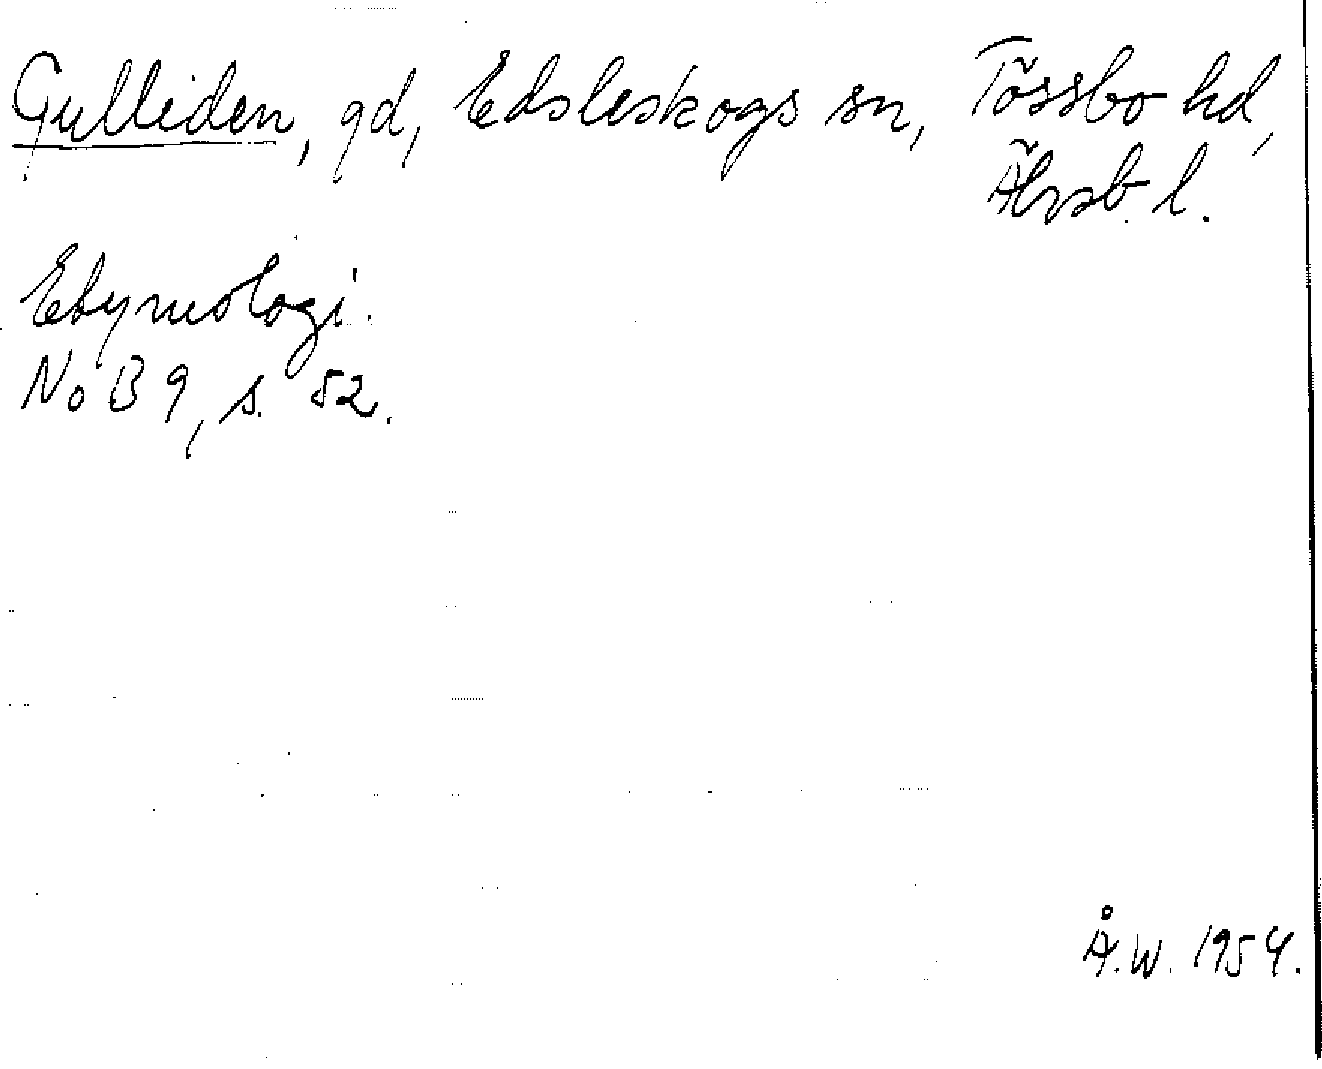 Gulliden, gd, Edsleskogs sn, Tössbo hd,
Älvsb. l.
Etymologi.
NoB 9, s. 52.
Å.W. 1954.